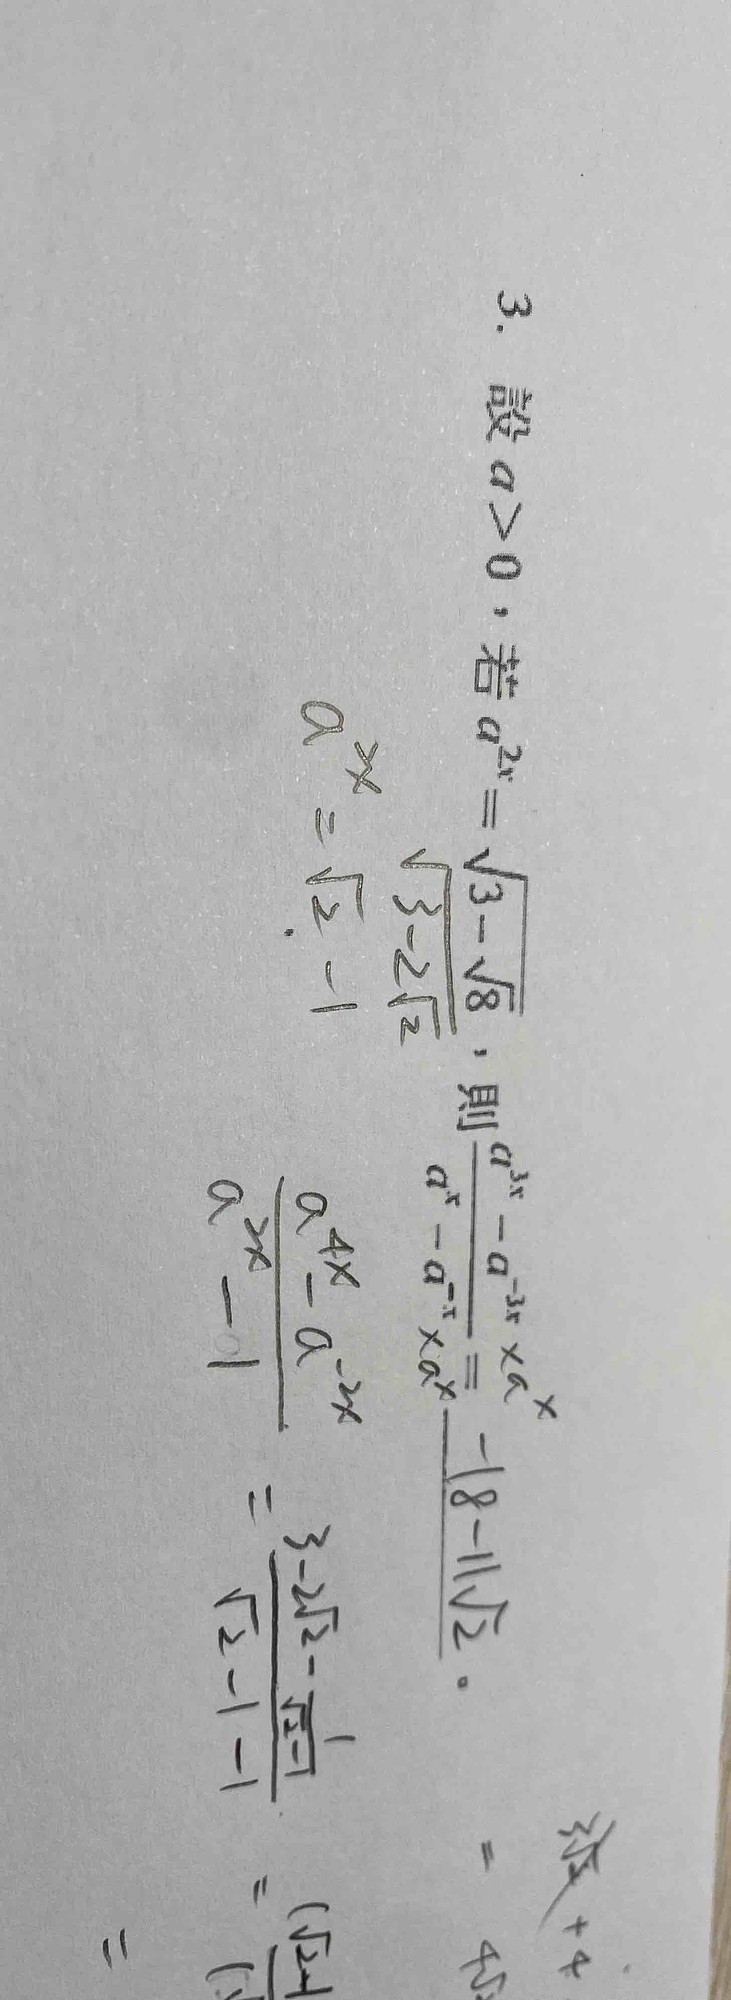 3. 設 a > 0，若 a^{2x} = √(3-√8)，則 (a^{3x} - a^{-3x})/(a^x - a^{-x}) = -18-11√2。
×a^x
×a^x
√(3-2√2)
a^{2x} = √2 - 1
(a^{4x} - a^{-2x})/(a^{2x} - 1) = (3-2√2 - 1/(√2-1))/(√2 - 1 - 1) =
+ 4
=
=